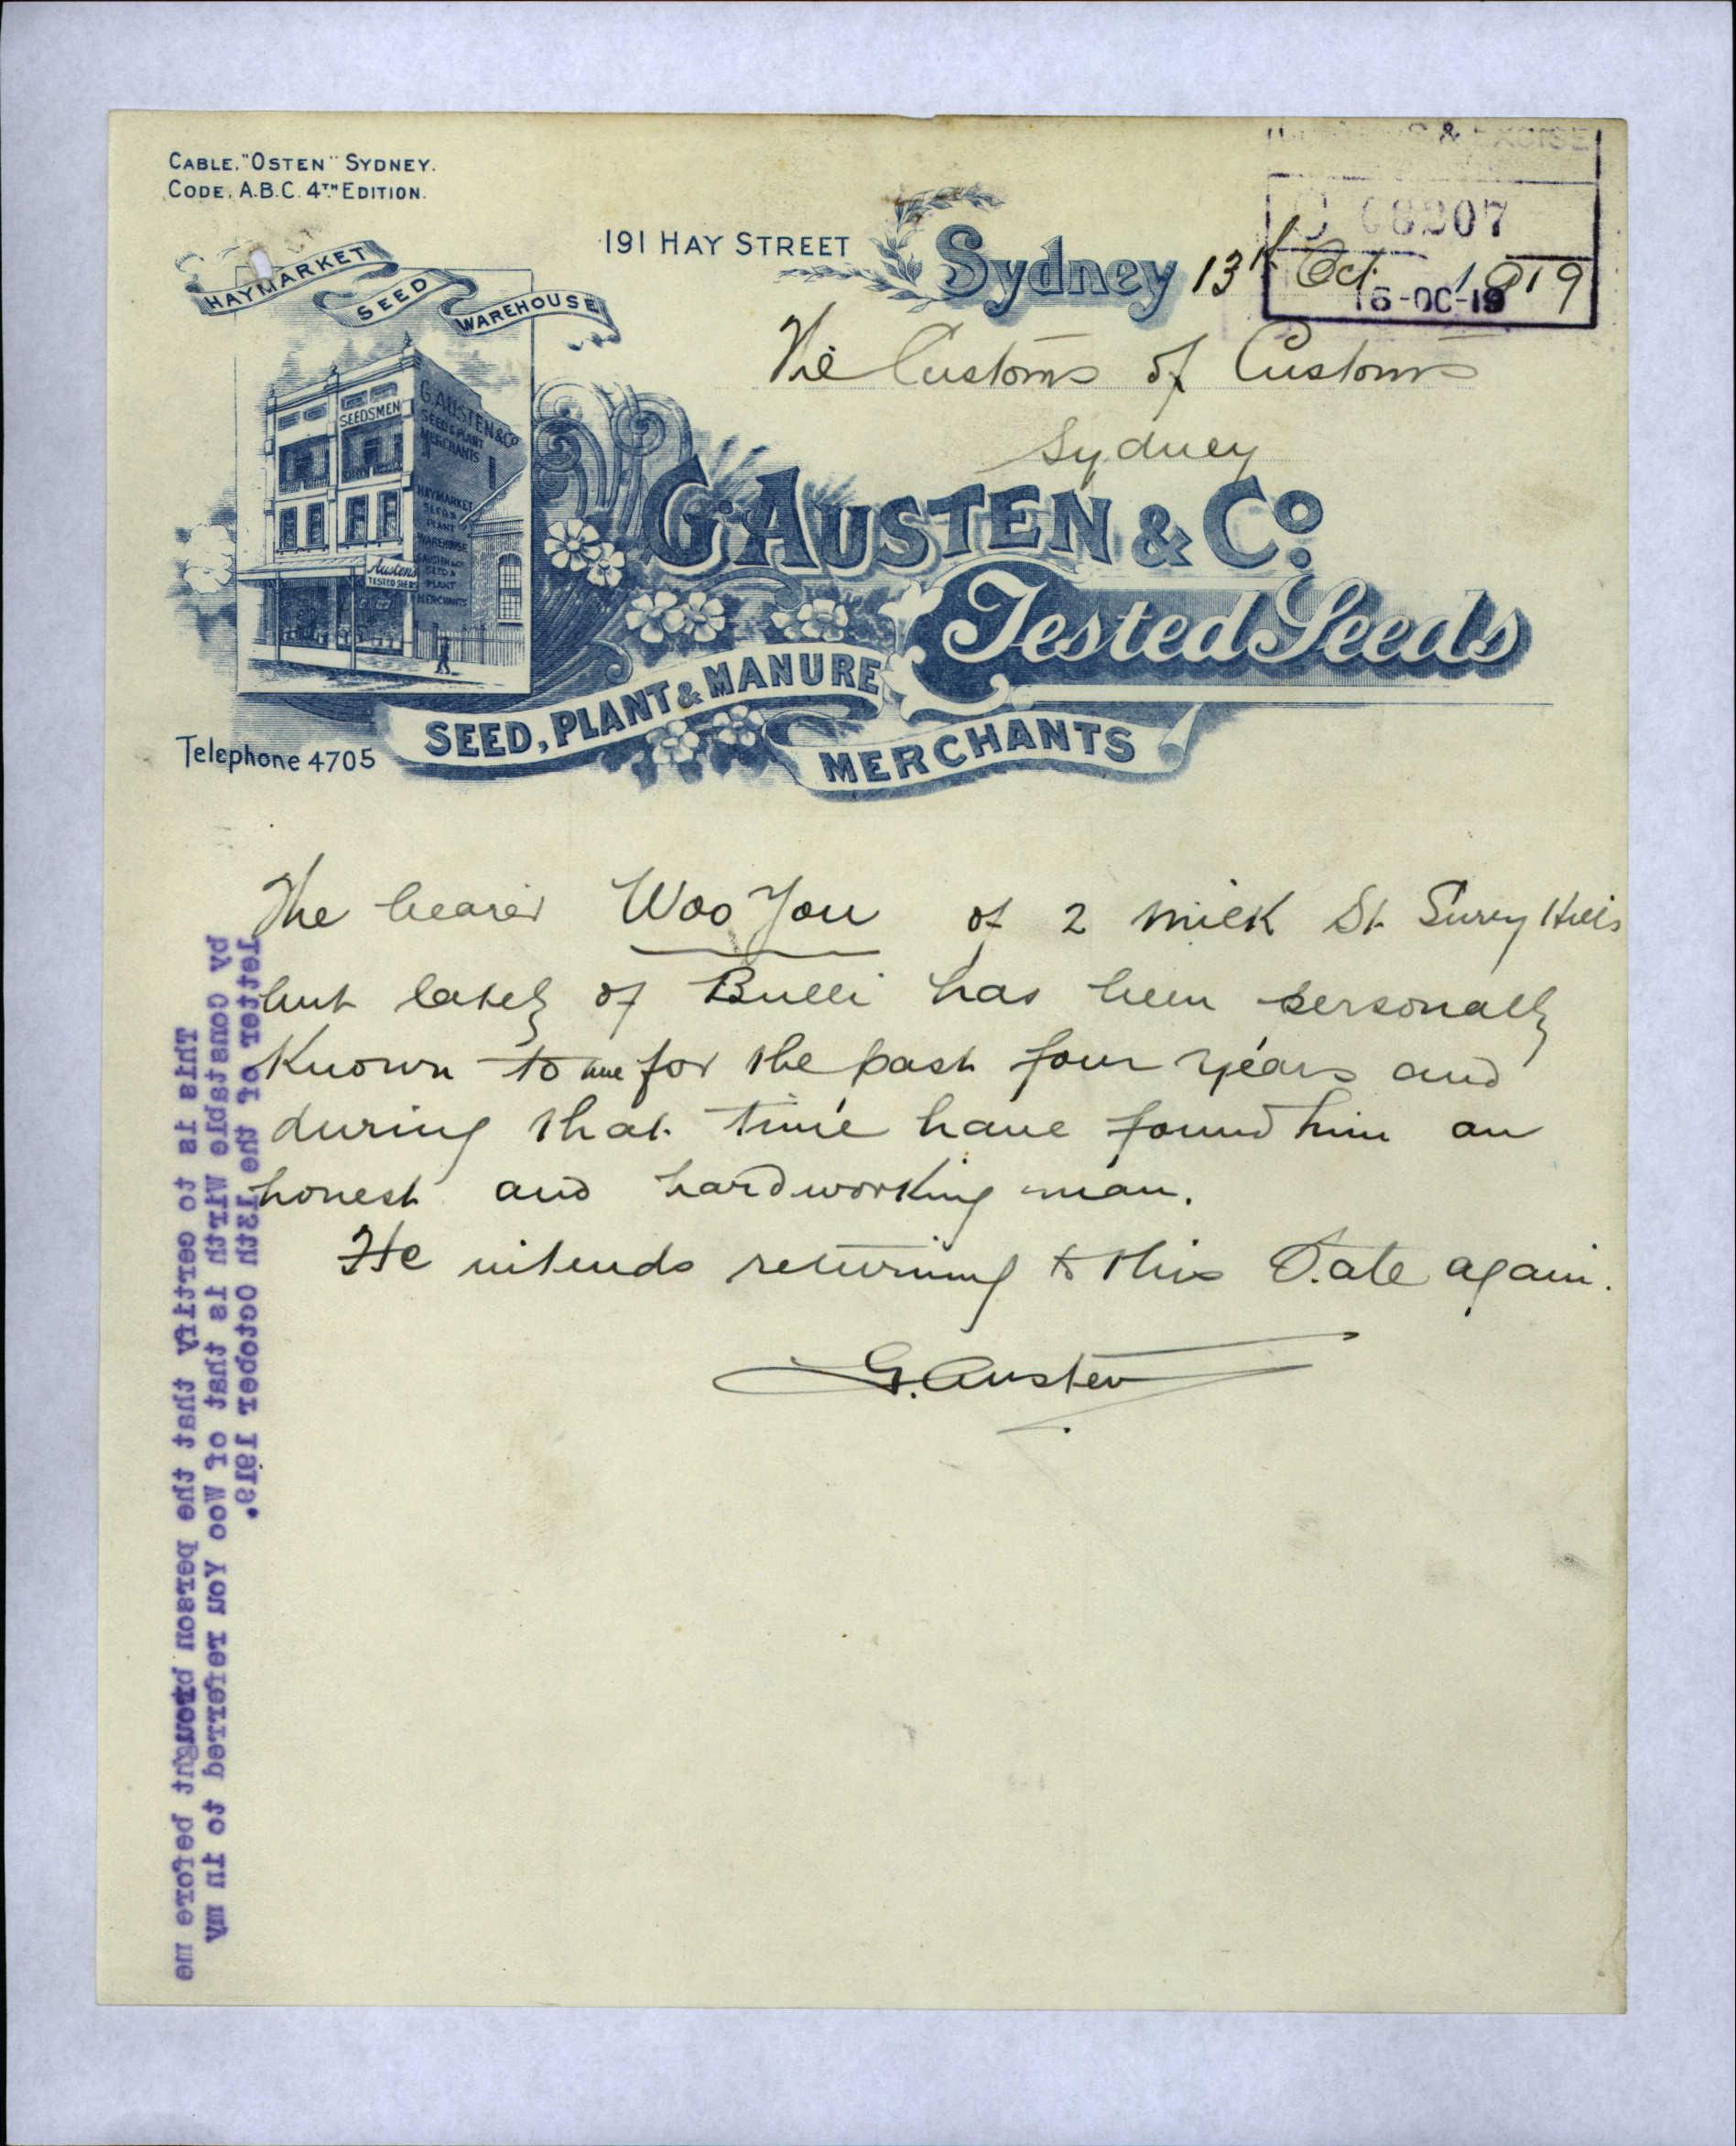 CABLE. "OSTEN" SYDNEY.
CODE. A.B.C. 4TH EDITION.
& EXCISE
191 HAY STREET
Sydney 13th Oct. 1919
16-OC-19
HAYMARKET SEED WAREHOUSE
The Customs of Customs
Sydney
SEEDSMEN
G. AUSTEN & Co
SEED & PLANT
MERCHANTS
HAYMARKET
SEED &
PLANT
WAREHOUSE
G. AUSTEN & Co
SEED &
PLANT
MERCHANTS
Austen's
TESTED SEEDS
G. AUSTEN & Co.
Tested Seeds
SEED, PLANT & MANURE
MERCHANTS
Telephone 4705
The bearer Woo You of 2 Milk St. Surry Hills
but lately of Bulli has been personally
Known to me for the past four years and
during that time have found him an
honest and hardworking man.
He intends returning to this State again.
G. Austen
This is to certify that the person brought before me
by Constable Wirth is that of Woo You referred to in my
letter of the 13th October 1919.